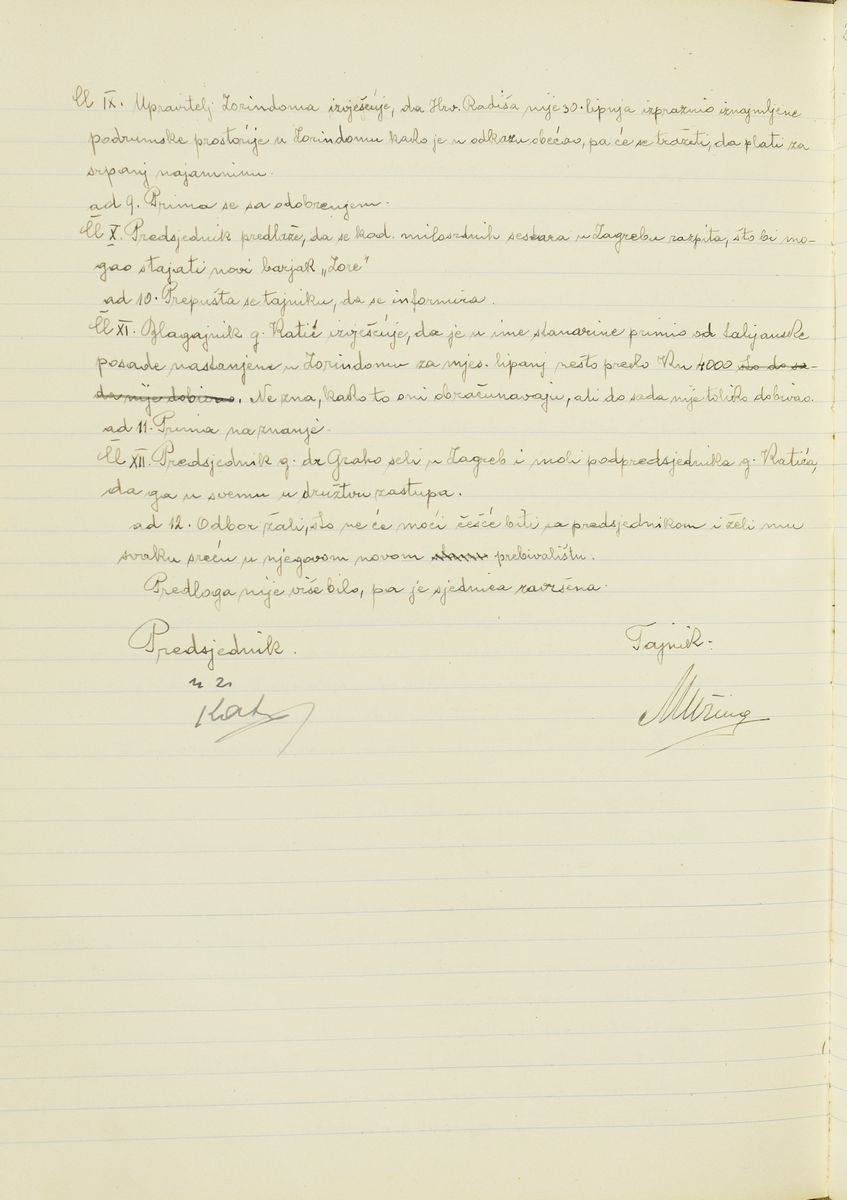 Čl IX. Upravitelj Zorindoma izvješćuje, da Hrv. Radiša nije 30. lipnja izpraznio iznajmljene
podrumske prostorije u Zorindomu kako je u odkazu obećao, pa će se tražiti, da plati za
srpanj najamninu.
ad 9. Prima se sa odobrenjem.
Čl X. Predsjednik predlaže, da se kod. milosrdnih sestara u Zagrebu razpita, što bi mo-
gao stajati novi barjak „Zore"
ad 10. Prepušta se tajniku, da se informira.
Čl XI. Blagajnik g. Katić izvješćuje, da je u ime stanarine primio od talijanske
posade nastanjene u Zorindomu za mjes. lipanj nešto preko Kn 4000 što do sa-
da nije dobivao. Ne zna, kako to oni obračunavaju, ali do sada nije toliko dobivao.
ad 11. Prima na znanje.
Čl XII. Predsjednik g. dr Graho seli u Zagreb i moli podpredsjednika g. Katića,
da ga u svemu u družtvu zastupa.
ad 12. Odbor žali, što ne će moći češće biti sa predsjednikom i želi mu
svaku sreću u njegovom novom stanu prebivalištu.
Predloga nije više bilo, pa je sjednica završena.
Predsjednik. Tajnik: